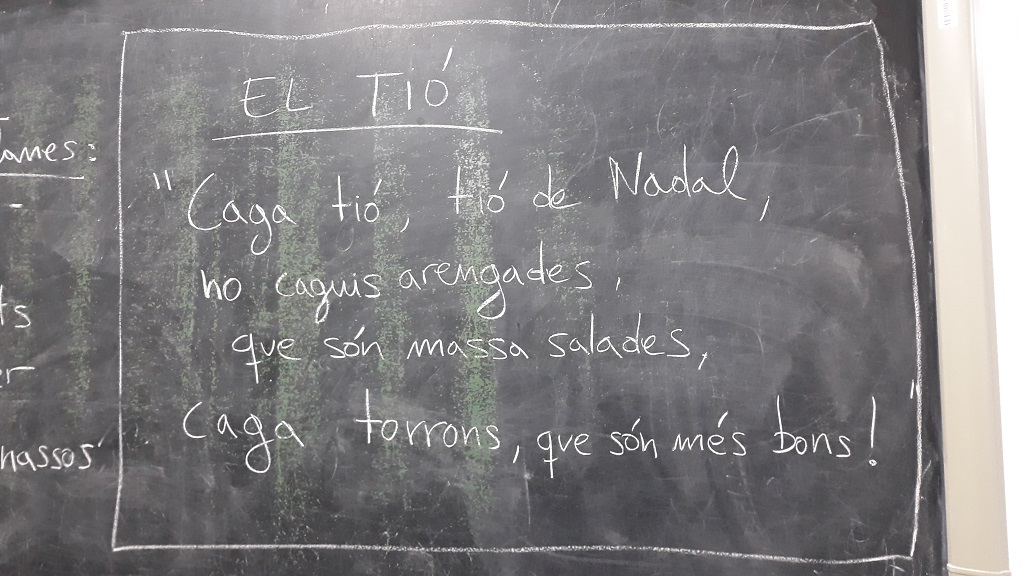 EL TIÓ
"Caga tió, tió de Nadal,
no caguis arengades,
que són massa salades,
caga torrons, que són més bons!"